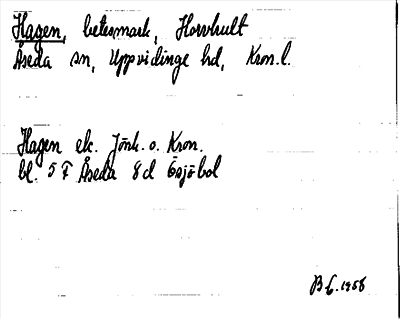 Hagen, betesmark, Horshult
Åseda sn, Uppvidinge hd, Kron.l.
Hagen ek. Jönk. o. Kron.
bl. 5 F Åseda 8d Ösjöbol
B 6. 1958